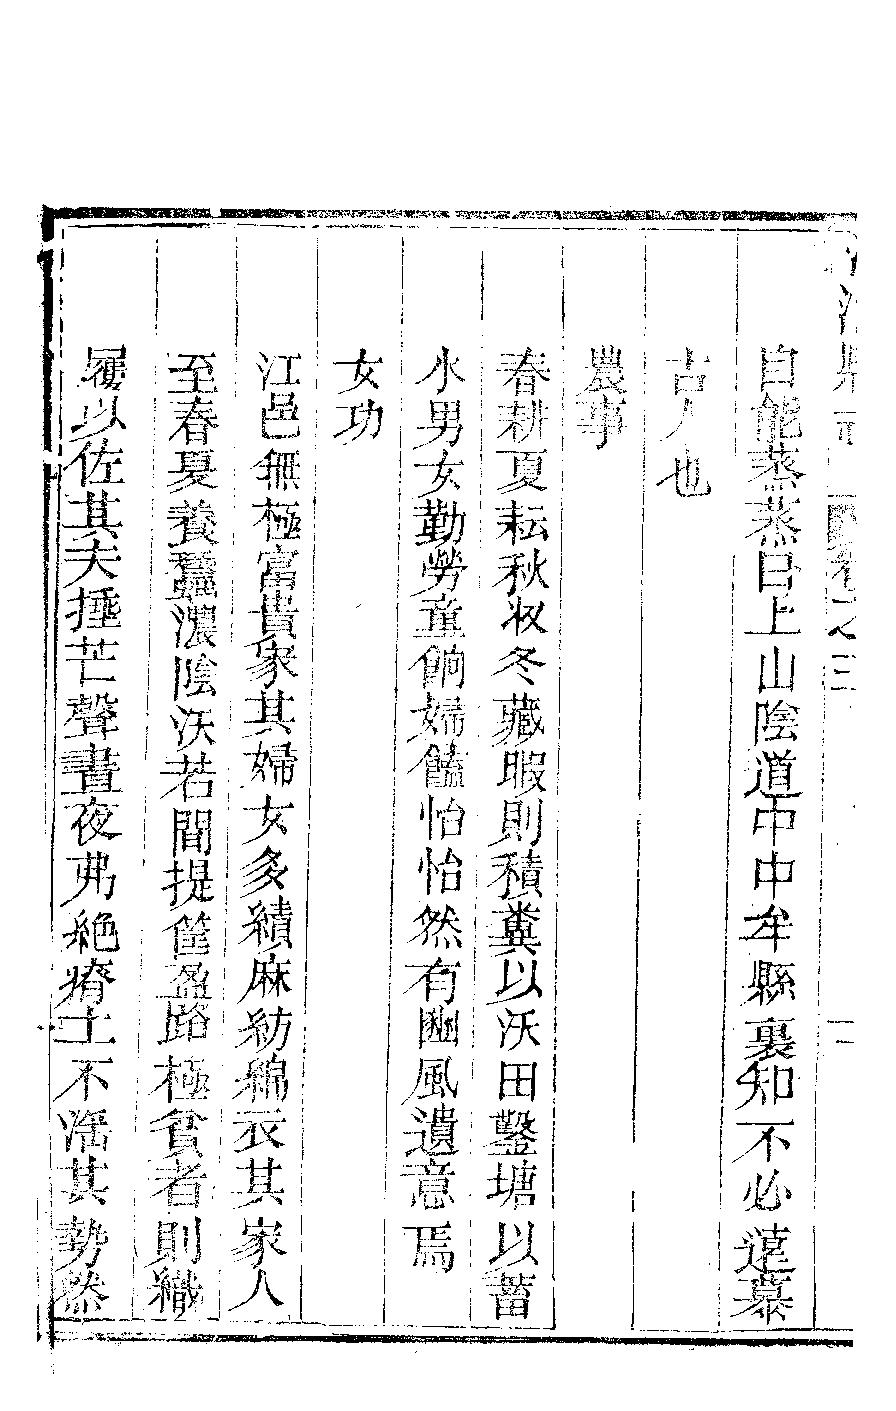 卷之三
自能蒸蒸日上山陰道中中牟縣裏知不必遠慕
古人也
農事
春耕夏耘秋收冬藏暇則積糞以沃田鑿塘以蓄
水男女勤勞童餉婦饁怡怡然有豳風遺意焉
女功
江邑無極富貴家其婦女多績麻紡綿衣其家人
至春夏養蠶濃陰沃若間提筐盈路極貧者則織
履以佐其夫捶芒聲晝夜弗絕瘠土不滛其勢然